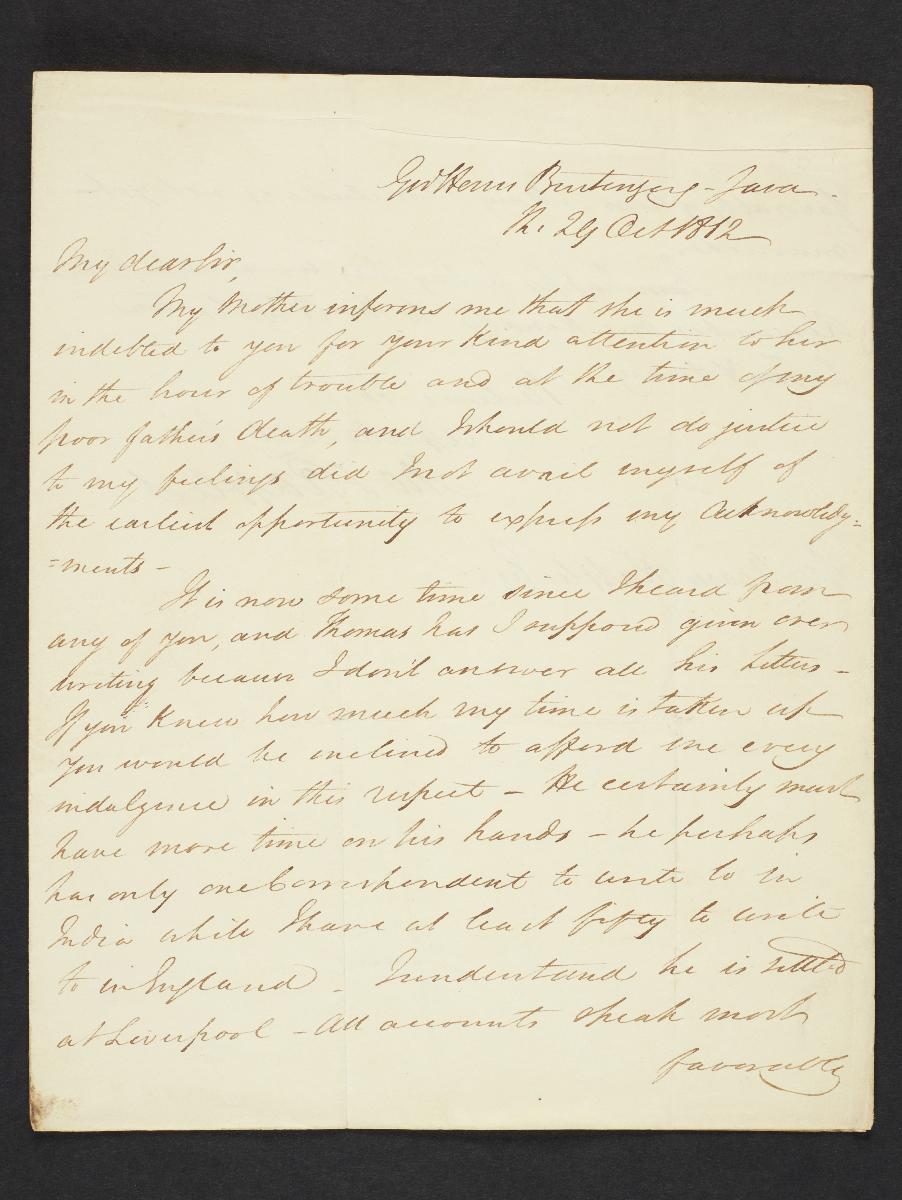 Govt House Buitenzorg - Java
The 29 Oct 1812
My dear Sir,
My Mother informs me that she is much
indebted to you for your kind attention to her
in the hour of trouble and at the time of my
poor father's death, and I should not do justice
to my feelings did I not avail myself of
the earliest opportunity to express my Acknowledg=
=ments -
It is now some time since I heard from
any of you, and Thomas has I suppose given over
writing because I don't answer all his letters -
If you knew how much my time is taken up
you would be inclined to afford me every
indulgence in this respect - He certainly must
have more time on his hands - he perhaps
has only one Correspondent to write to in
India while I have at least fifty to write
to in England - I understand he is settled
at Liverpool - All accounts speak most
favorably